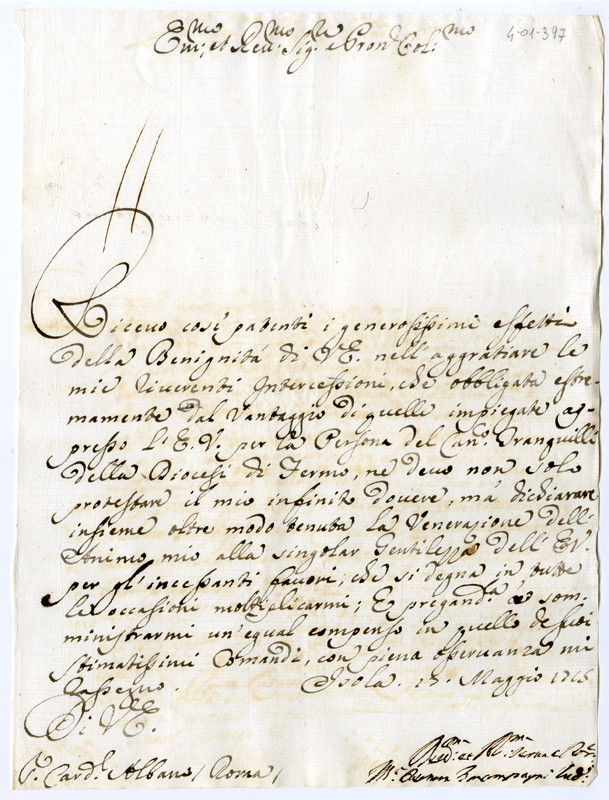 Em:mo et Reu:mo Sig:r e Pron Col:mo
4-01-397
Riceuo così patenti i generosissimi effetti
della Benignità di V.E. nell'aggratiare le
mie riuerenti Intercessioni, che obbligata estre-
mamente dal vantaggio di quelle impiegate ap-
presso l'E.V. per la Persona del Can:co Tranquilli
della Diocesi di Fermo, ne deuo non solo
protestare il mio infinito douere, mà dichiarare
insieme oltre modo tenuta la Venerazione dell'
Animo mio alla singolar Gentilezza dell'E.V.
per gl'incessanti fauori, che si degna in tutte
le occasioni moltiplicarmi; E pregandola à som-
ministrarmi un'egual compenso in quello de suoi
stimatissimi Comandi, con piena osseruanza mi
rassegno. Isola. 17. Maggio
Di V.E.
Card:l Albano / Roma /